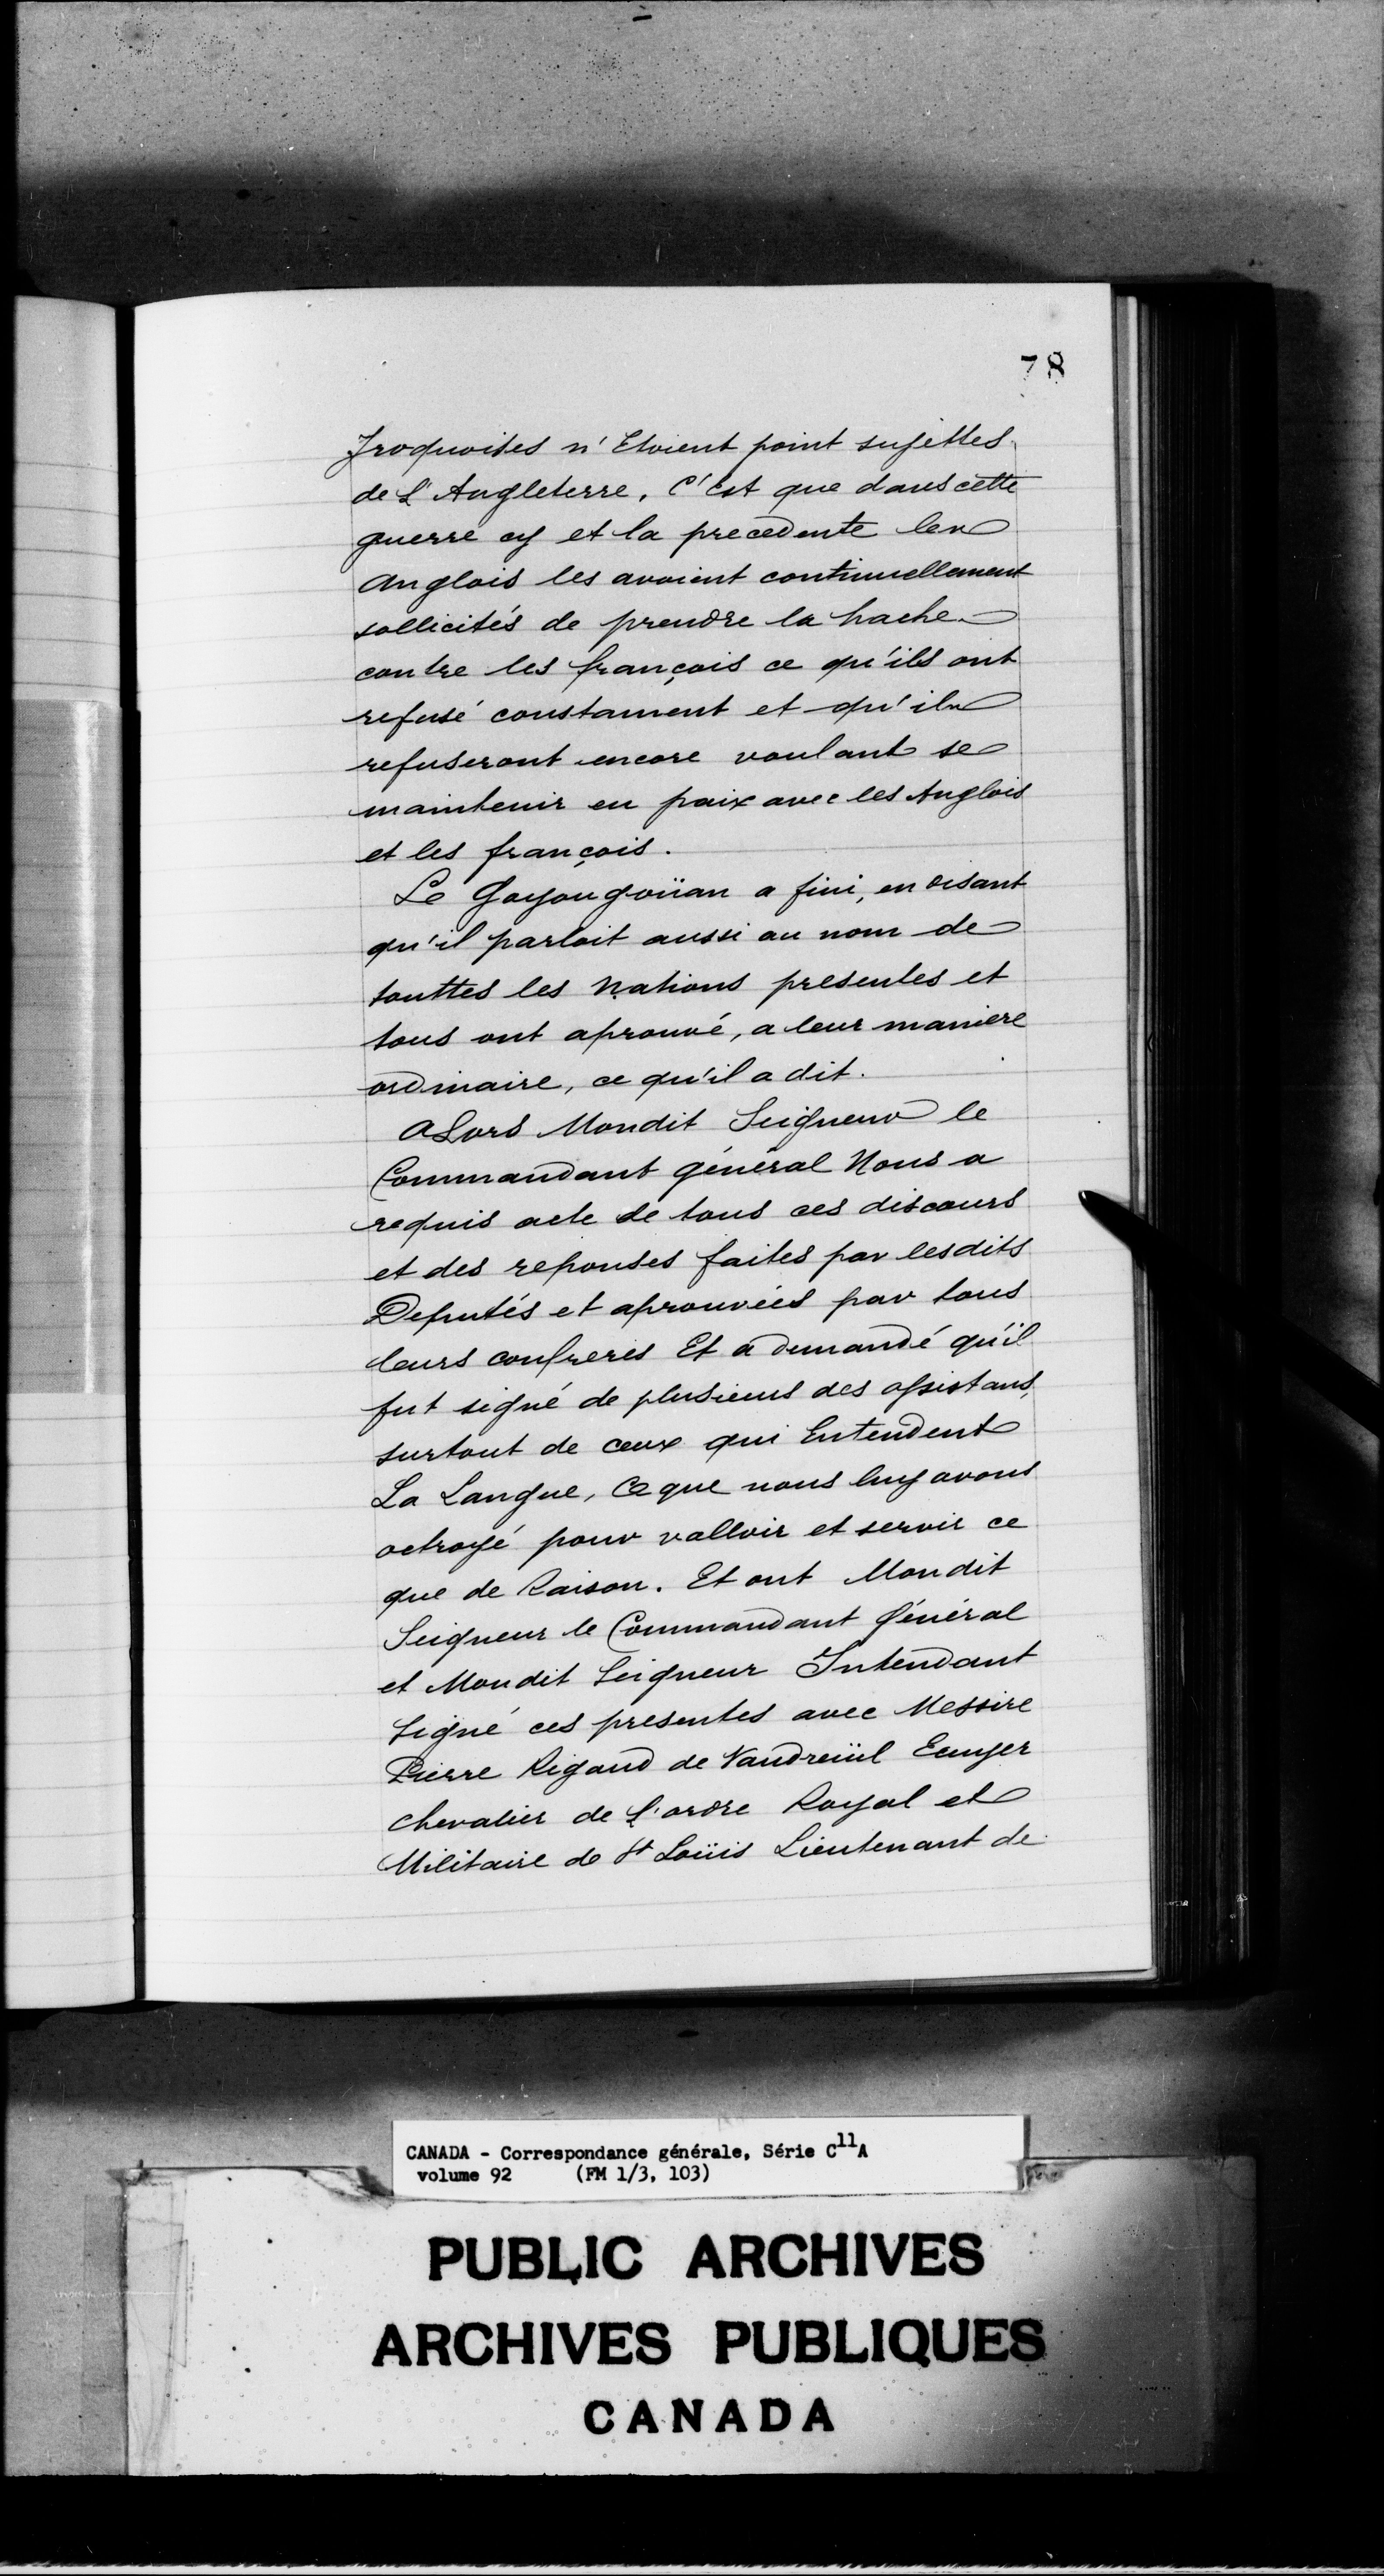 78
Iroquoises n'Etoient point sujettes
de L'Angleterre, C'est que dans cette
guerre cy et la precedente les
anglois les avoient continuellement
sollicités de prendre la hache
contre les françois ce qu'ils ont
refusé constament et qu'ils
refuseront encore voulant se
maintenir en paix avec les Anglois
et les françois.
Le Goyongoüan a fini, en disant
qu'il parloit aussi au nom de
touttes les Nations presentes et
tous ont aprouvé, a leur maniere
ordinaire, ce qu'il a dit.
aLors Mondit Seigneur le
Commandant général Nous a
requis acte de tous ces discours
et des reponses faites par lesdits
Deputés et aprouvées par tous
leurs confreres Et a demandé qu'il
fut signé de plusieurs des assistans,
surtout de ceux qui Entendent
La Langue, Ce que nous luy avons
octroyé pour valloir et servir ce
que de Raison. Et ont Mondit
Seigneur le Commandant Général
et Mondit Seigneur Intendant
Signé ces presentes avec Messire
Pierre Rigaud de Vaudreüil Ecuyer
chevalier de L'ordre Royal et
Militaire de St Loüis Lieutenant de
CANADA - Correspondance générale, Série C11A
volume 92 (FM 1/3, 103)
PUBLIC ARCHIVES
ARCHIVES PUBLIQUES
CANADA